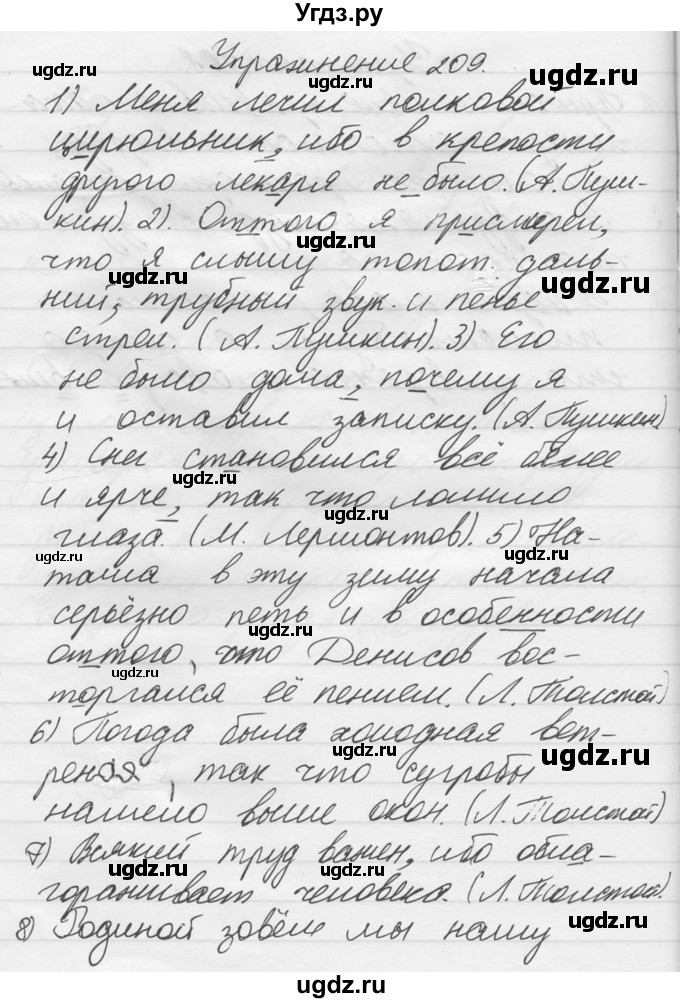 Угдз.ру
Упражнение 209.
1) Меня лечил полковой
цирюльник, ибо в крепости
другого лекаря не было. (А. Пуш-
кин). 2). Оттого я присмирел,
что я слышу топот даль-
ний, трубный звук и пенье
стрел. (А. Пушкин). 3) Его
не было дома, почему я
и оставил записку. (А. Пушкин)
4) Снег становился всё белее
и ярче, так что ломило
глаза. (М. Лермонтов). 5) На-
таша в эту зиму начала
серьёзно петь и в особенности
оттого, что Денисов вос-
торгался её пением. (Л. Толстой)
6) Погода была холодная вет-
реная, так что сугробы
нашело выше окон. (Л. Толстой)
7) Всякий труд важен, ибо обла-
гораживает человека. (Л. Толстой.
8) Родиной зовём мы нашу
ugdz.ru